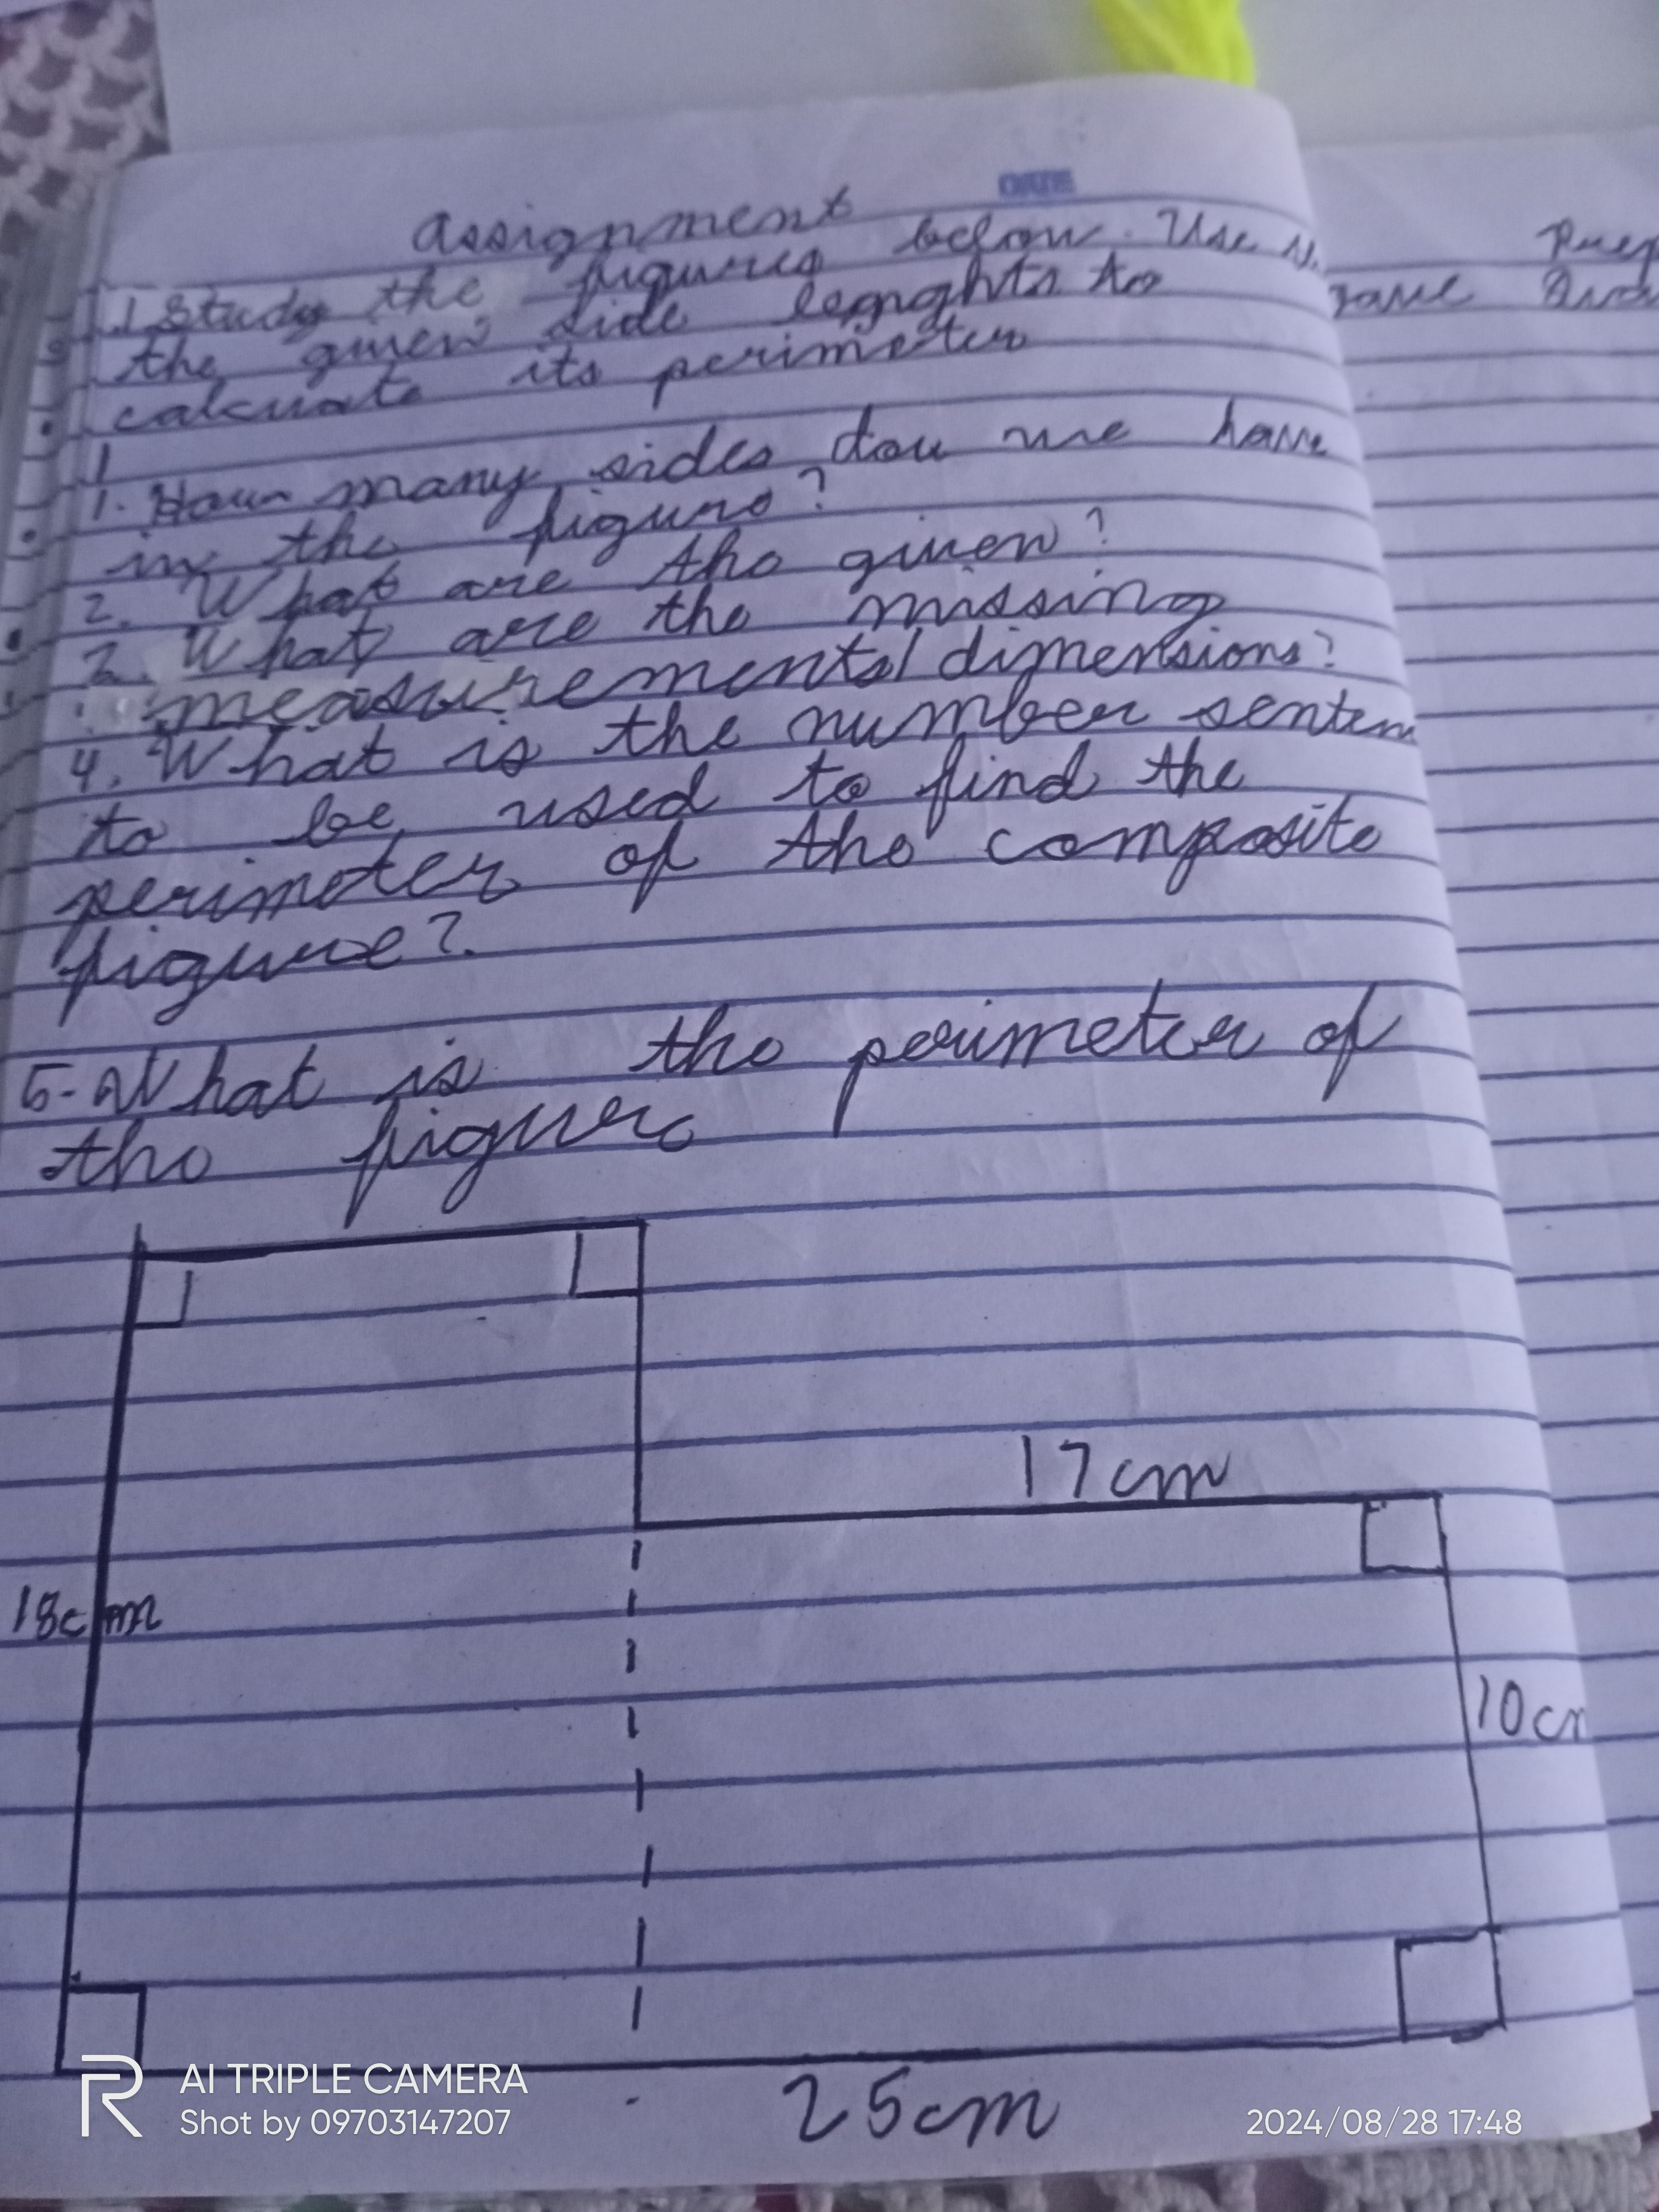 DATE
assignment
1 Study the figures below. Use
the given side lengghts to
calcuate its perimeter
1
1. How many sides dou we have
in the figure?
2. What are the given?
3. What are the missing
measurements/dimensions?
4. What is the number senten
to be used to find the
perimeter of the composite
figure?
5- What is the perimeter of
the figure
17cm
18cm
10cm
25cm
AI TRIPLE CAMERA
Shot by 09703147207
2024/08/28 17:48